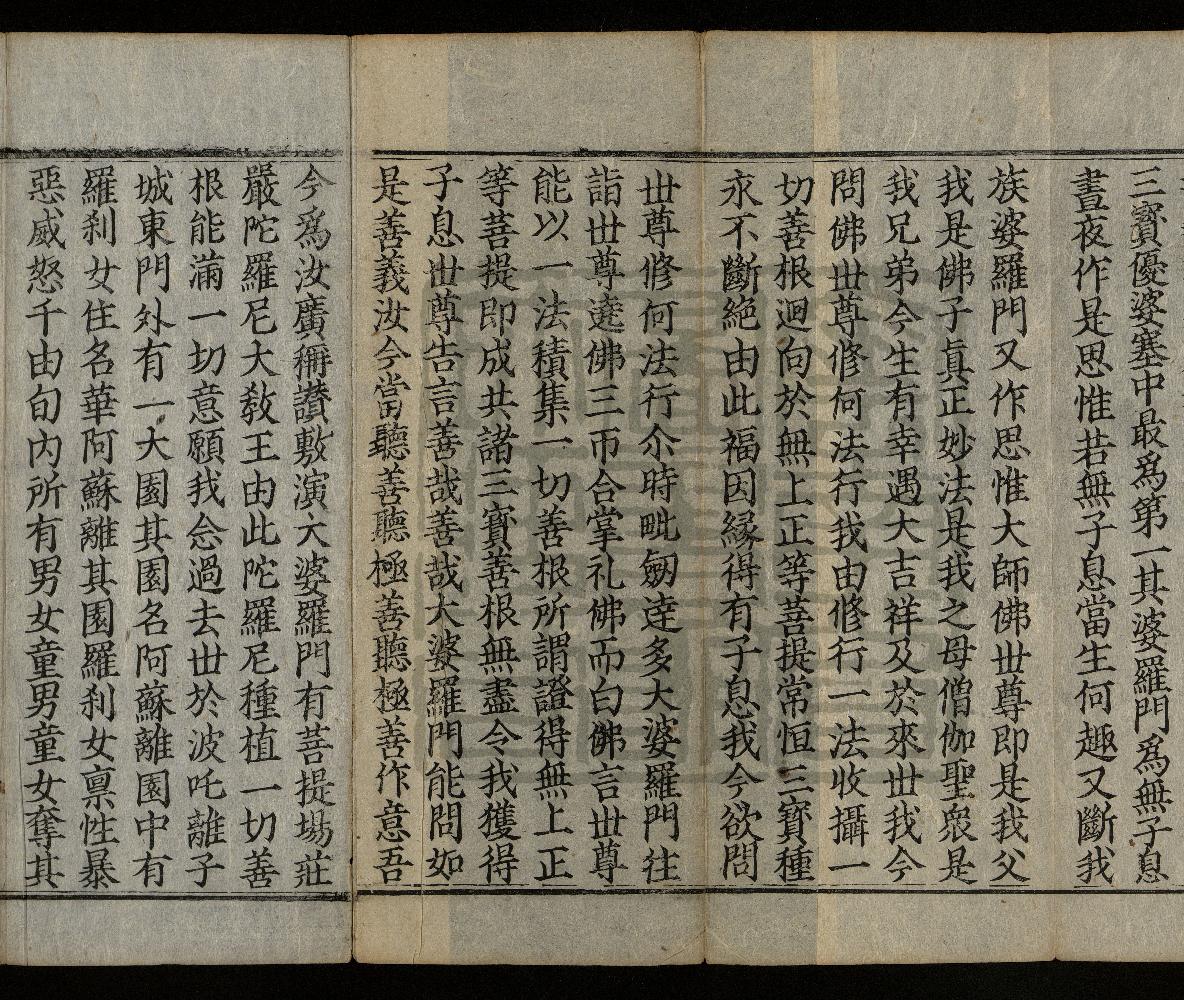 三寳優婆塞中最爲第一其婆羅門爲無子息
晝夜作是思惟若無子息當生何趣又斷我
族婆羅門又作思惟大師佛世尊即是我父
我是佛子真正妙法是我之母僧伽聖衆是
我兄弟今生有幸遇大吉祥及於來世我今
問佛世尊修何法行我由修行一法收攝一
切善根迴向於無上正等菩提常恒三寳種
永不斷絕由此福因緣得有子息我今欲問
世尊修何法行尒時毗劒逹多大婆羅門往
詣世尊遶佛三帀合掌礼佛而白佛言世尊
能以一法積集一切善根所謂證得無上正
等菩提即成共諸三寳善根無盡令我獲得
子息世尊告言善哉善哉大婆羅門能問如
是善義汝今當聽善聽極善聽極善作意吾
今爲汝廣稱讚敷演大婆羅門有菩提場莊
嚴陀羅尼大教王由此陀羅尼種植一切善
根能滿一切意願我念過去世於波吒離子
城東門外有一大園其園名阿蘇離園中有
羅刹女住名華阿蘇離其園羅刹女禀性暴
惡威怒千由旬内所有男女童男童女奪其